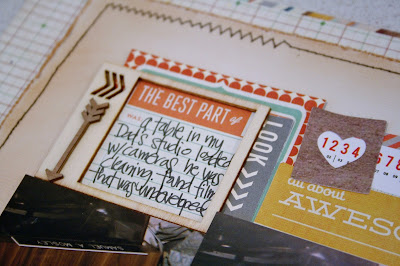 THE BEST PART of
a table in my
Dad's studio loaded
w/cameras he was
cleaning. And film
that was undeveloped.
LOOK
1234
all about
AWESO
SAMUEL A MOSLEY